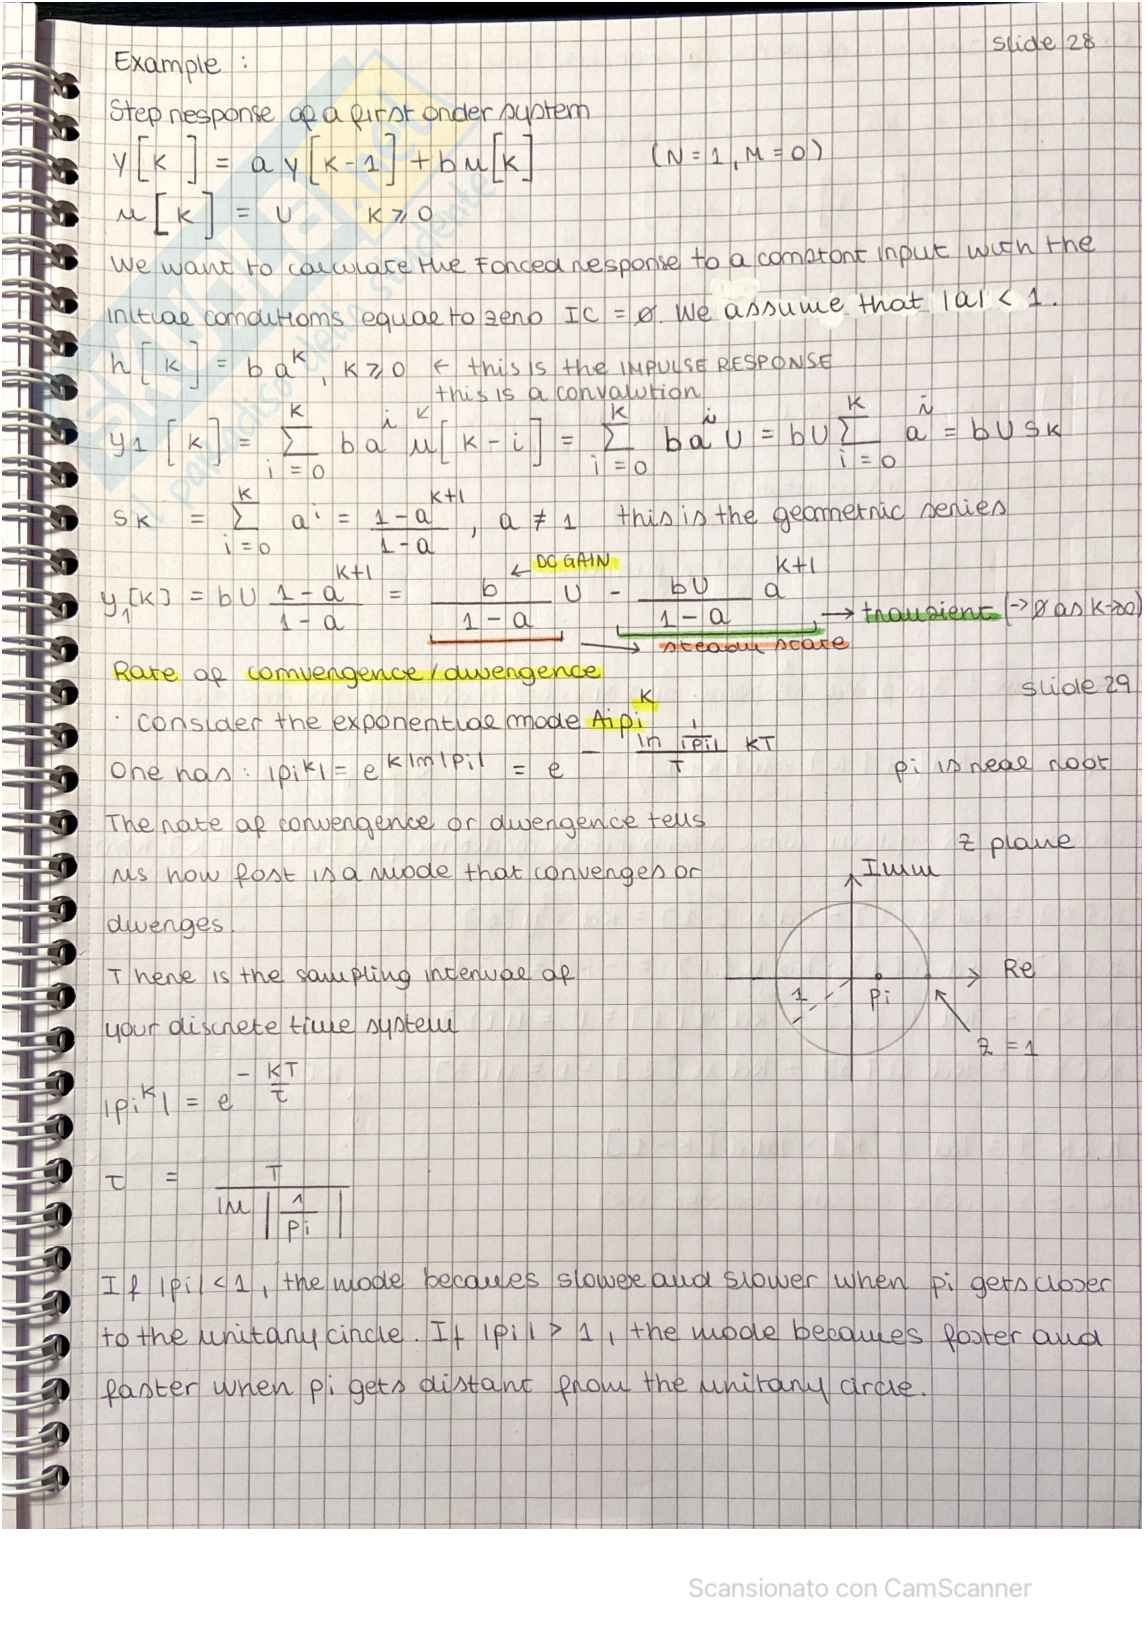 slide 28
Example :
Step response of a first order system
y[k] = a y[k-1] + b u[k] (N=1, M=0)
u[k] = U k ≥ 0
We want to calculate the forced response to a constant input with the
initial conditions equal to zero IC = ∅. We assume that |a| < 1.
h[k] = b a^k, k ≥ 0 ← this is the IMPULSE RESPONSE
this is a convolution
y1[k] = Σ_{i=0}^{k} b a^i u[k-i] = Σ_{i=0}^{k} b a^i U = bU Σ_{i=0}^{k} a^i = bU Sk
Sk = Σ_{i=0}^{k} a^i = (1-a^{k+1})/(1-a), a ≠ 1 this is the geometric series
← DC GAIN
y1[k] = bU (1-a^{k+1})/(1-a) = b/(1-a) U - bU/(1-a) a^{k+1} → transient (→ ∅ as k→∞)
→ steady state
Rate of convergence/divergence
slide 29
· Consider the exponential mode Aipi^k
One has: |pi^k| = e^{k ln|pi|} = e^{- (ln 1/|pi|)/T kT} pi is real root
The rate of convergence or divergence tells
us how fast is a mode that converges or
diverges.
There is the sampling interval of
your discrete time system
z plane
Imm
Re
1
pi
z = 1
|pi^k| = e^{-kT/τ}
τ = T / ln|1/pi|
If |pi| < 1, the mode becomes slower and slower when pi gets closer
to the unitary circle. If |pi| > 1, the mode becomes faster and
faster when pi gets distant from the unitary circle.
Scansionato con CamScanner